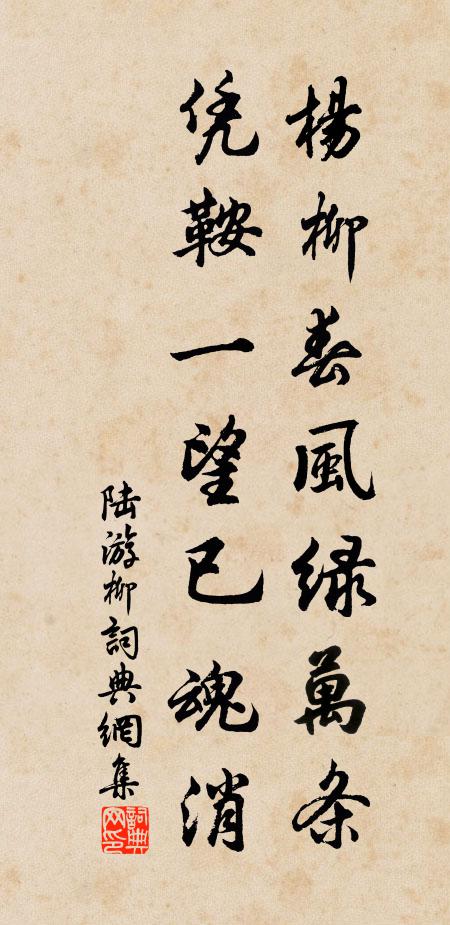 楊柳春風緑萬条
凭鞍一望已魂消
陆游柳詞典網集
詞典网印